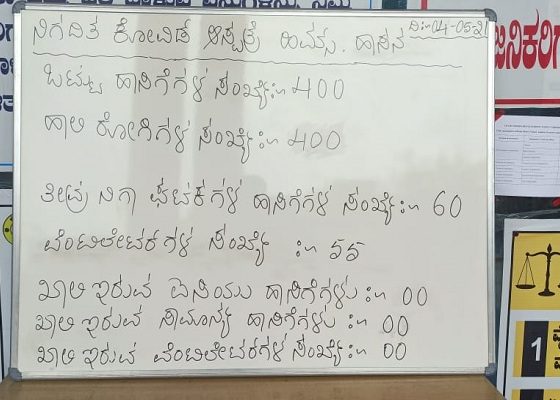 ನಿಗದಿತ ಕೋವಿಡ್ ಆಸ್ಪತ್ರೆ ಹಿಮ್ಸ್. ಹಾಸನ ದಿ:-04-05-21
ಒಟ್ಟು ಹಾಸಿಗೆಗಳ ಸಂಖ್ಯೆ:- 400
ಹಾಲಿ ರೋಗಿಗಳ ಸಂಖ್ಯೆ:- 400
ತೀವ್ರ ನಿಗಾ ಘಟಕಗಳ ಹಾಸಿಗೆಗಳ ಸಂಖ್ಯೆ:- 60
ವೆಂಟಿಲೇಟರಗಳ ಸಂಖ್ಯೆ :- 55
ಖಾಲಿ ಇರುವ ಐಸಿಯು ಹಾಸಿಗೆಗಳು:- 00
ಖಾಲಿ ಇರುವ ಸಾಮಾನ್ಯ ಹಾಸಿಗೆಗಳು:- 00
ಖಾಲಿ ಇರುವ ವೆಂಟಿಲೇಟರಗಳ ಸಂಖ್ಯೆ:- 00
1